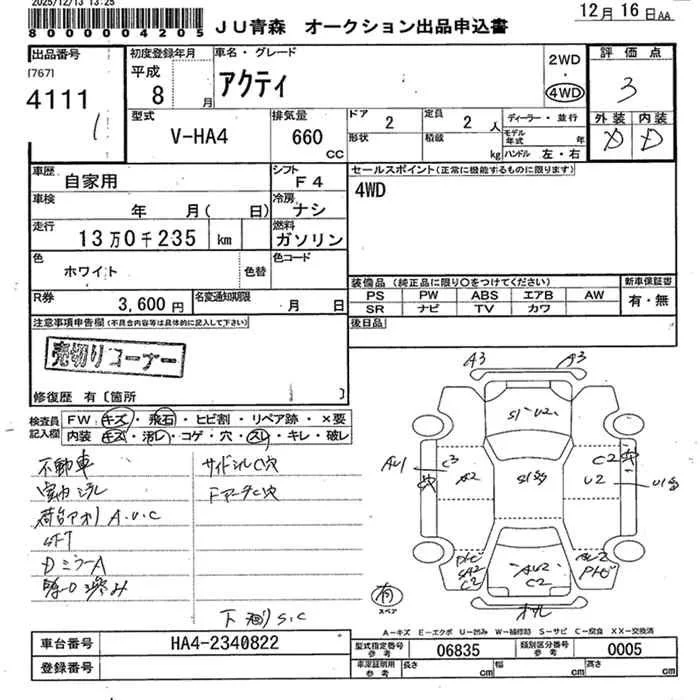 2025/12/13 13:25
8000004205
JU青森 オークション出品申込書
12月16日AA
出品番号
[767]
4111
初度登録年月
平成
8 月
車名・グレード
アクティ
2WD
・
4WD
評価点
3
外装 内装
D D
型式
V-HA4
排気量
660
CC
ドア 2
形状
定員 2 人
積載 kg
ディーラー・並行
モデル年式 年
ハンドル 左・右
車歴
自家用
シフト
F4
車検
年 月( 日)
冷房
ナシ
走行
13万0千235 km
燃料
ガソリン
色
ホワイト
色替
色コード
R券
3,600 円
名変通知期限
月 日
セールスポイント(正常に機能するものに限ります)
4WD
装備品(純正品に限り○をつけてください)
PS PW ABS エアB AW
SR ナビ TV カワ
新車保証書
有・無
後日品
注意事項申告欄(不具合内容等は具体的に記入して下さい)
売切りコーナー
修復歴 有〔箇所 〕
検査員
記入欄
FW キズ・飛石・ヒビ割・リペア跡・×要
内装 キズ・汚レ・コゲ・穴・スレ・キレ・破レ
不動車
荷台アオリ A.U.C
DミラーA
サイドシルC穴
下廻りS.C
A3 A3
S1 U2
AU1
C3
C2
U2
AU2
C2
有
スペア
A-キズ E-エクボ U-凹み W-補修跡 S-サビ C-腐食 XX-交換済
車台番号
HA4-2340822
登録番号
型式指定番号
参考
06835
類別区分番号
参考
0005
車庫証明用
参考
長さ cm 幅 cm 高さ cm